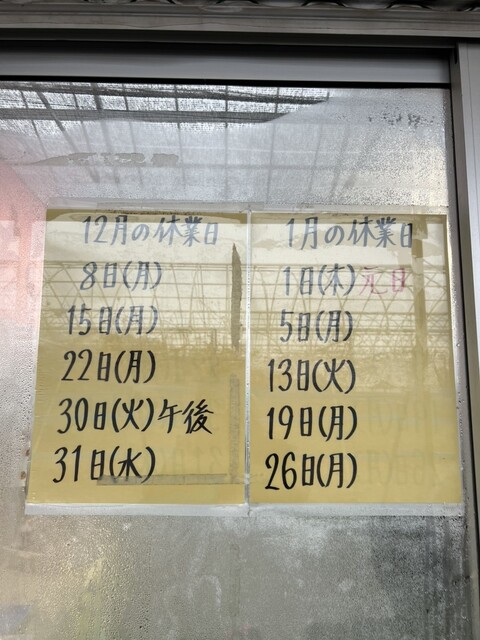 12月の休業日
8日(月)
15日(月)
22日(月)
30日(火)午後
31日(水)
1月の休業日
1日(木)元日
5日(月)
13日(火)
19日(月)
26日(月)